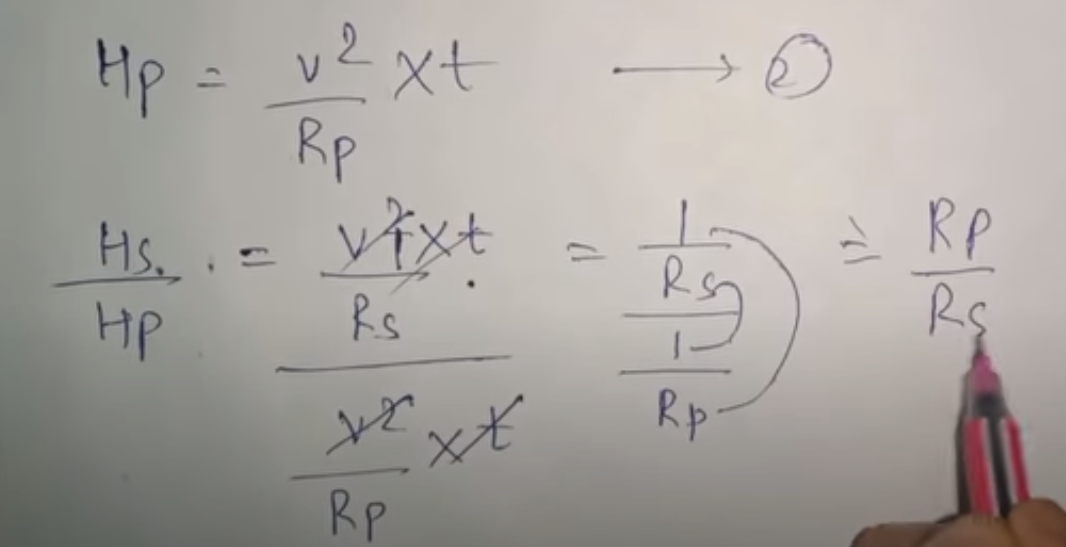 Hp = v²/Rp × t ⟶ ②
Hs./Hp = (v²/Rs × t)/(v²/Rp × t) = (1/Rs)/(1/Rp) = Rp/Rs